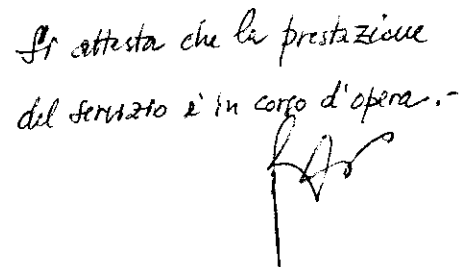 Si attesta che la prestazione
del servizio è in corso d'opera.-